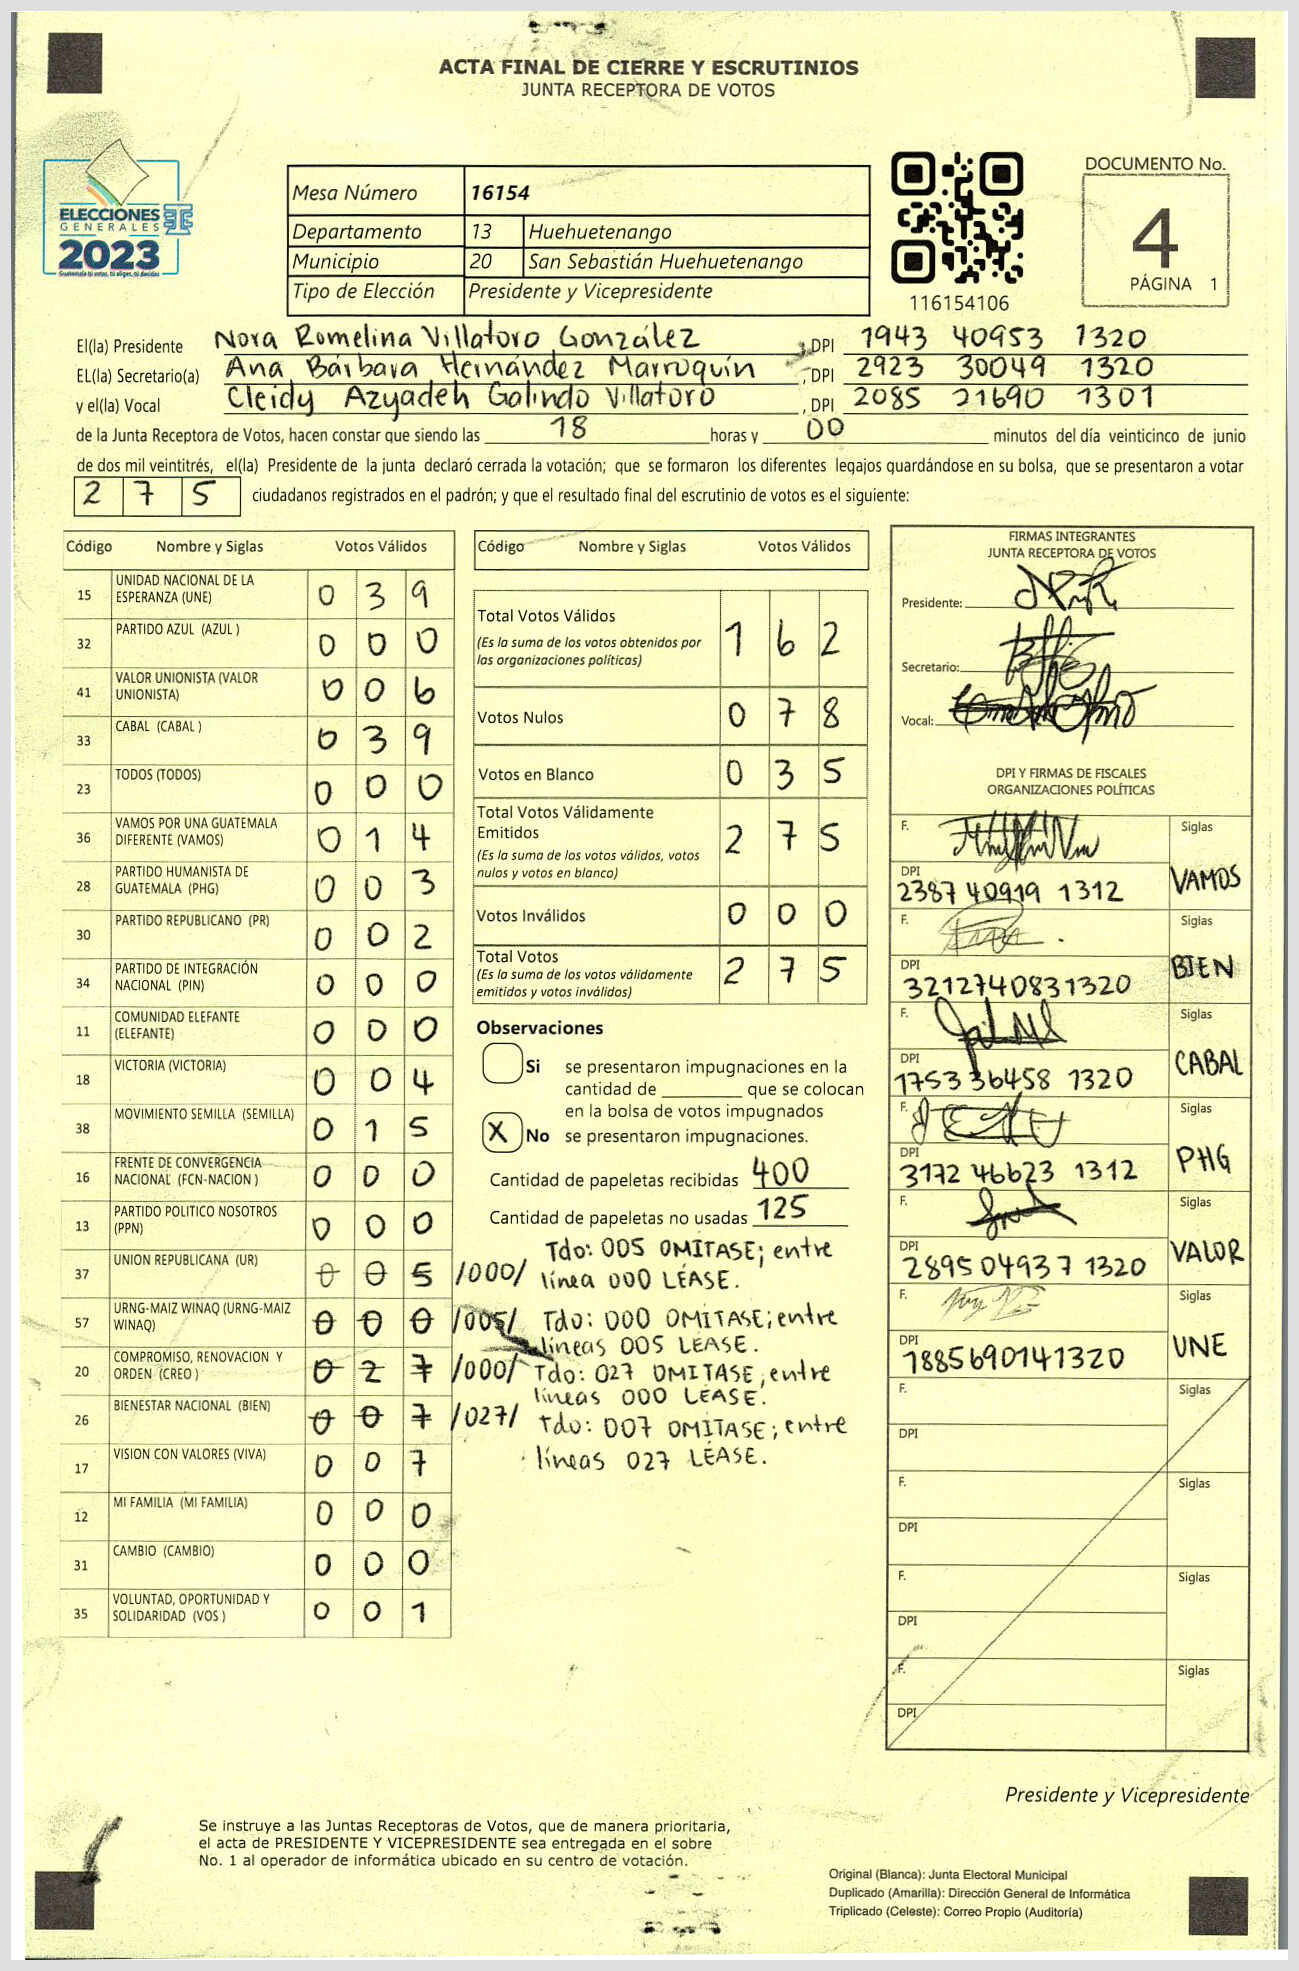 ACTA FINAL DE CIERRE Y ESCRUTINIOS
JUNTA RECEPTORA DE VOTOS
ELECCIONES
GENERALES
2023
Guatemala tú votas, tú eliges, tú decides
Mesa Número 16154
Departamento 13 Huehuetenango
Municipio 20 San Sebastián Huehuetenango
Tipo de Elección Presidente y Vicepresidente
116154106
DOCUMENTO No.
4
PÁGINA 1
El(la) Presidente Nora Romelina Villatoro González , DPI 1943 40953 1320
EL(la) Secretario(a) Ana Bárbara Hernández Marroquín , DPI 2923 30049 1320
y el(la) Vocal Cleidy Azyadeh Galindo Villatoro , DPI 2085 21690 1301
de la Junta Receptora de Votos, hacen constar que siendo las 18 horas y 00 minutos del día veinticinco de junio
de dos mil veintitrés, el(la) Presidente de la junta declaró cerrada la votación; que se formaron los diferentes legajos guardándose en su bolsa, que se presentaron a votar
2 7 5 ciudadanos registrados en el padrón; y que el resultado final del escrutinio de votos es el siguiente:
Código Nombre y Siglas Votos Válidos
15 UNIDAD NACIONAL DE LA ESPERANZA (UNE) 0 3 9
32 PARTIDO AZUL (AZUL ) 0 0 0
41 VALOR UNIONISTA (VALOR UNIONISTA) 0 0 6
33 CABAL (CABAL ) 0 3 9
23 TODOS (TODOS) 0 0 0
36 VAMOS POR UNA GUATEMALA DIFERENTE (VAMOS) 0 1 4
28 PARTIDO HUMANISTA DE GUATEMALA (PHG) 0 0 3
30 PARTIDO REPUBLICANO (PR) 0 0 2
34 PARTIDO DE INTEGRACIÓN NACIONAL (PIN) 0 0 0
11 COMUNIDAD ELEFANTE (ELEFANTE) 0 0 0
18 VICTORIA (VICTORIA) 0 0 4
38 MOVIMIENTO SEMILLA (SEMILLA) 0 1 5
16 FRENTE DE CONVERGENCIA NACIONAL (FCN-NACION ) 0 0 0
13 PARTIDO POLITICO NOSOTROS (PPN) 0 0 0
37 UNION REPUBLICANA (UR) 0 0 5 /000/
57 URNG-MAIZ WINAQ (URNG-MAIZ WINAQ) 0 0 0 /005/
20 COMPROMISO, RENOVACION Y ORDEN (CREO ) 0 2 7 /000/
26 BIENESTAR NACIONAL (BIEN) 0 0 7 /027/
17 VISION CON VALORES (VIVA) 0 0 7
12 MI FAMILIA (MI FAMILIA) 0 0 0
31 CAMBIO (CAMBIO) 0 0 0
35 VOLUNTAD, OPORTUNIDAD Y SOLIDARIDAD (VOS ) 0 0 1
Código Nombre y Siglas Votos Válidos
Total Votos Válidos 1 6 2
(Es la suma de los votos obtenidos por
las organizaciones políticas)
Votos Nulos 0 7 8
Votos en Blanco 0 3 5
Total Votos Válidamente
Emitidos 2 7 5
(Es la suma de los votos válidos, votos
nulos y votos en blanco)
Votos Inválidos 0 0 0
Total Votos 2 7 5
(Es la suma de los votos válidamente
emitidos y votos inválidos)
Observaciones
Si se presentaron impugnaciones en la
cantidad de ________ que se colocan
en la bolsa de votos impugnados
X No se presentaron impugnaciones.
Cantidad de papeletas recibidas 400
Cantidad de papeletas no usadas 125
Tdo: 005 OMÍTASE; entre
línea 000 LÉASE.
Tdo: 000 OMÍTASE; entre
líneas 005 LÉASE.
Tdo: 027 OMÍTASE, entre
líneas 000 LÉASE.
Tdo: 007 OMÍTASE; entre
líneas 027 LÉASE.
FIRMAS INTEGRANTES
JUNTA RECEPTORA DE VOTOS
Presidente:
Secretario:
Vocal:
DPI Y FIRMAS DE FISCALES
ORGANIZACIONES POLÍTICAS
F. Siglas
DPI 2387 40919 1312 VAMOS
F. Siglas
DPI 3212740831320 BIEN
F. Siglas
DPI 1753 36458 1320 CABAL
F. Siglas
DPI 3172 46623 1312 PHG
F. Siglas
DPI 2895 04937 1320 VALOR
F. Siglas
DPI 1885690141320 UNE
F. Siglas
DPI
F. Siglas
DPI
F. Siglas
DPI
F. Siglas
DPI
Presidente y Vicepresidente
Se instruye a las Juntas Receptoras de Votos, que de manera prioritaria,
el acta de PRESIDENTE Y VICEPRESIDENTE sea entregada en el sobre
No. 1 al operador de informática ubicado en su centro de votación.
Original (Blanca): Junta Electoral Municipal
Duplicado (Amarilla): Dirección General de Informática
Triplicado (Celeste): Correo Propio (Auditoría)